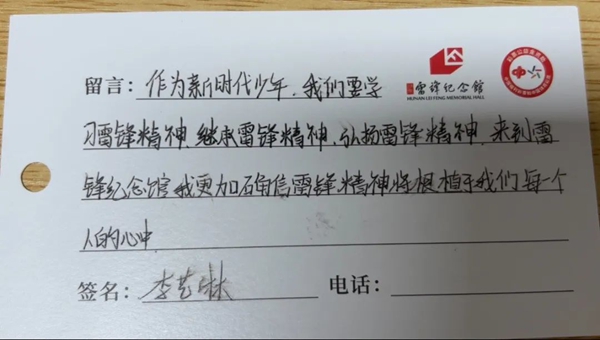 雷锋纪念馆
HUNAN LEI FENG MEMORIAL HALL
留言：作为新时代少年，我们要学
习雷锋精神，继承雷锋精神、弘扬雷锋精神，来到雷
锋纪念馆我更加确信雷锋精神将根植于我们每一个
人的心中
签名：李艺琳 电话：